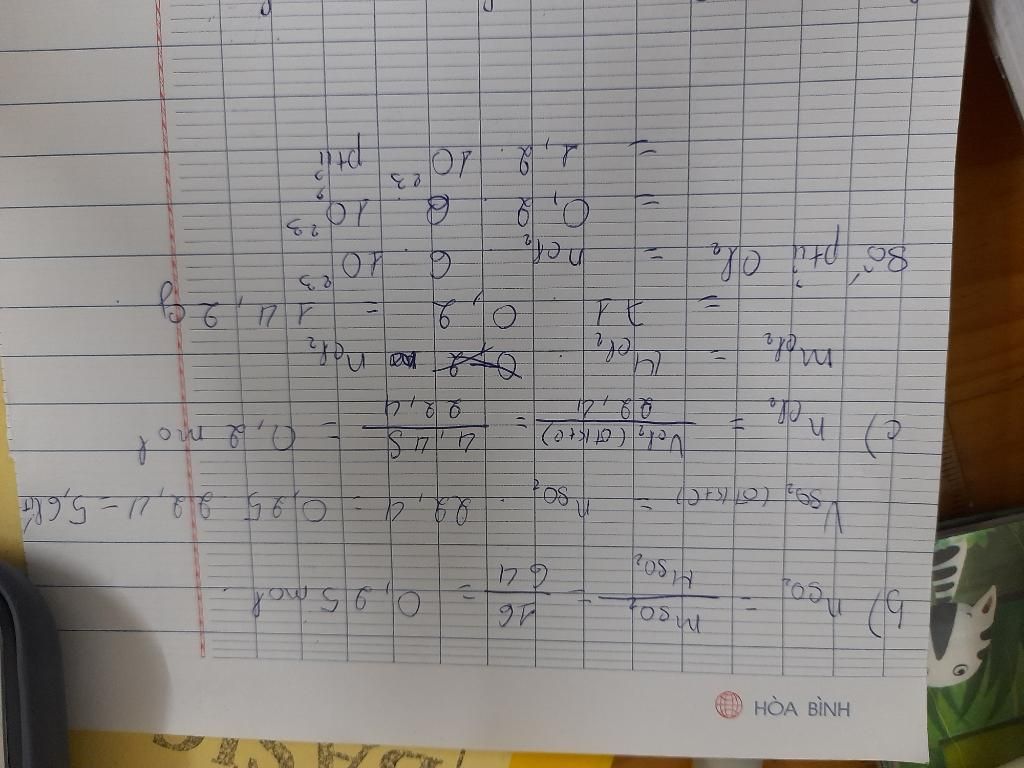 HÒA BÌNH
b) nSO₂ = mSO₂ / MSO₂ = 16 / 64 = 0,25 mol
VSO₂ (đktc) = nSO₂ . 22,4 = 0,25 . 22,4 = 5,6 lít
c) nCl₂ = VCl₂ (đktc) / 22,4 = 4,48 / 22,4 = 0,2 mol
mCl₂ = MCl₂ . nCl₂
= 71 . 0,2 = 14,2 g
Số ptử Cl₂ = nCl₂ . 6 . 10²³
= 0,2 . 6 . 10²³
= 1,2 . 10²³ ptử